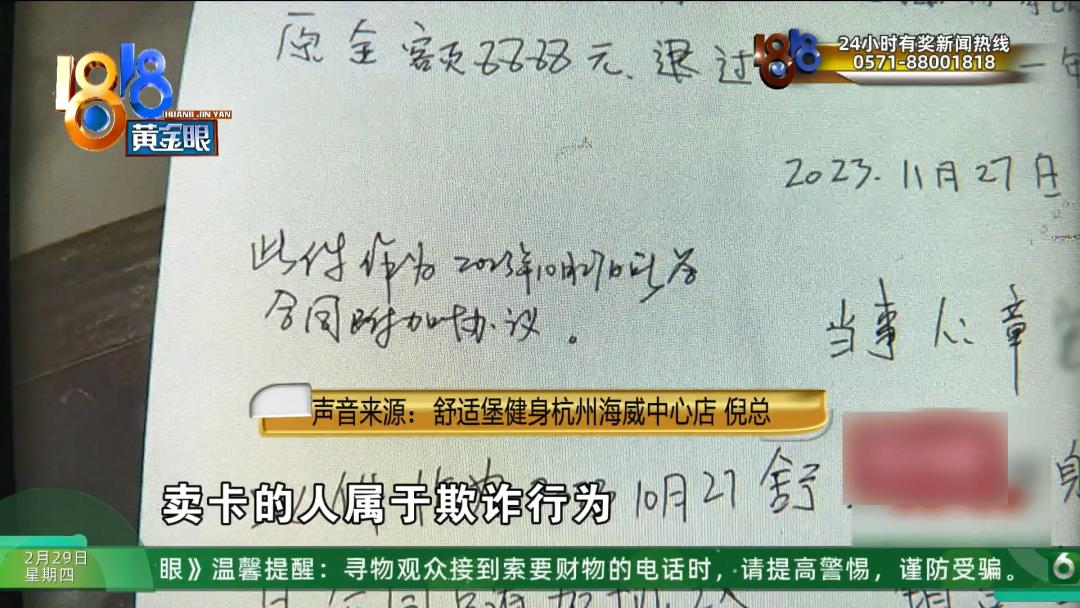 原金额8868元、退过
24小时有奖新闻热线
0571-88001818
1818
HUANG JIN YAN
黄金眼
2023.11月27日
此件作为2023年10月27日
合同附加协议。
当事人:章
声音来源：舒适堡健身杭州海威中心店 倪总
10月27舒
卖卡的人属于欺诈行为
2月29日
星期四
眼》温馨提醒：寻物观众接到索要财物的电话时，请提高警惕，谨防受骗。
6